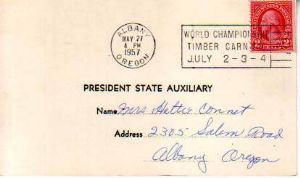 ALBANY
MAY 27
4 PM
1957
OREGON
WORLD CHAMPIONSHIP
TIMBER CARNIVAL
JULY 2-3-4
PRESIDENT STATE AUXILIARY
Name Mrs Hattie Connet
Address 2305 Salem Road
Albany Oregon